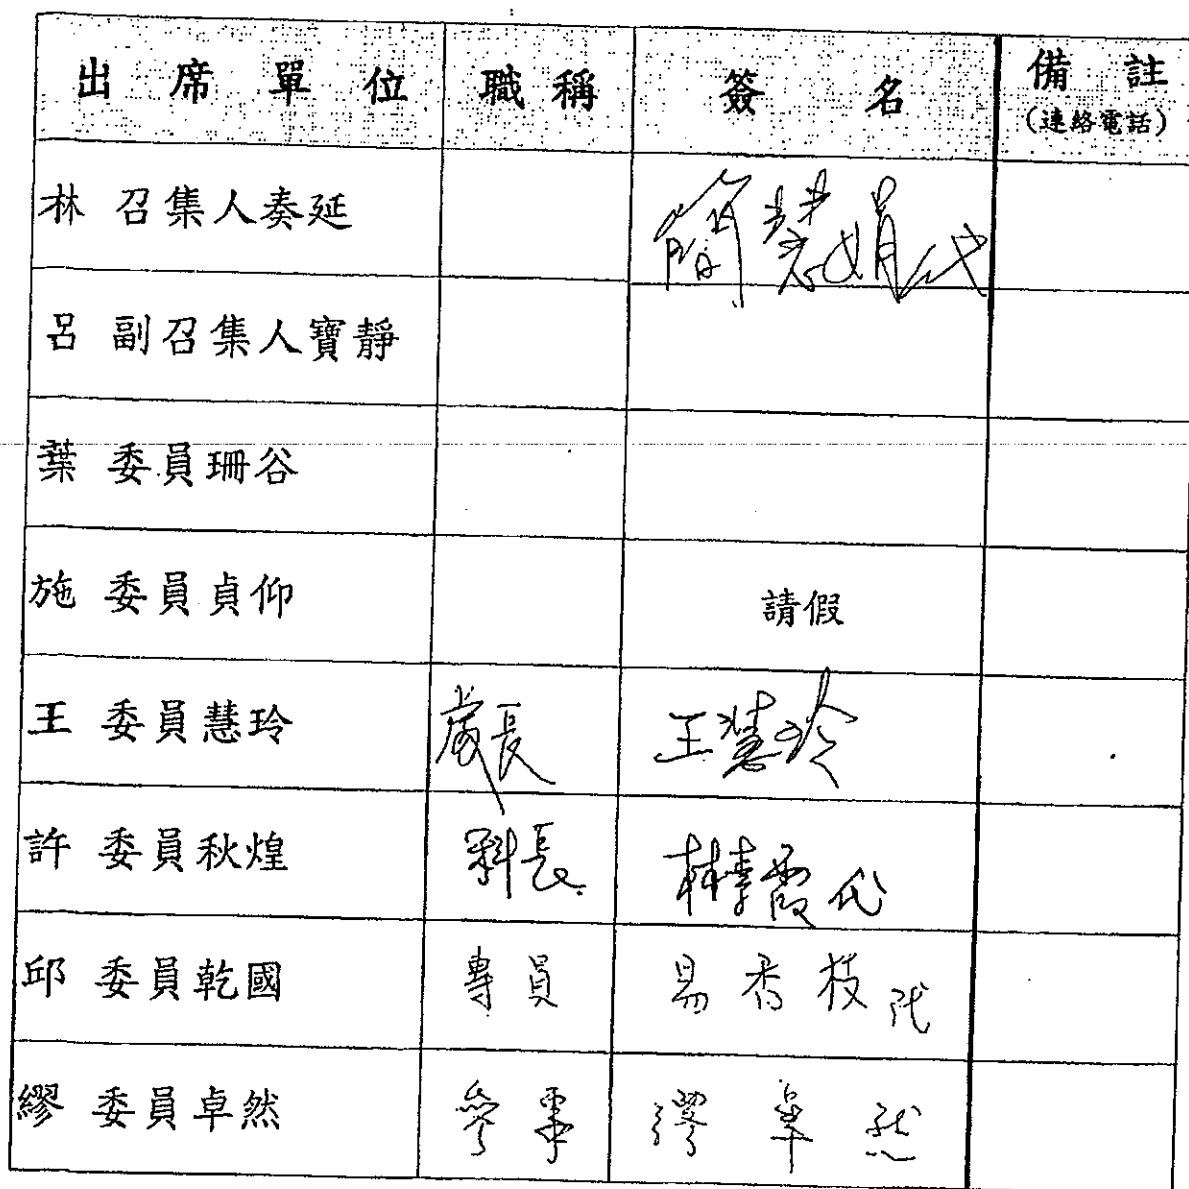 出席單位 職稱 簽名 備註
(連絡電話)
林 召集人奏延 簡慧娟代
呂 副召集人寶靜
葉 委員珊谷
施 委員貞仰 請假
王 委員慧玲 處長 王慧玲
許 委員秋煌 科長 林春霞代
邱 委員乾國 專員 易秀枝代
繆 委員卓然 參事 繆卓然